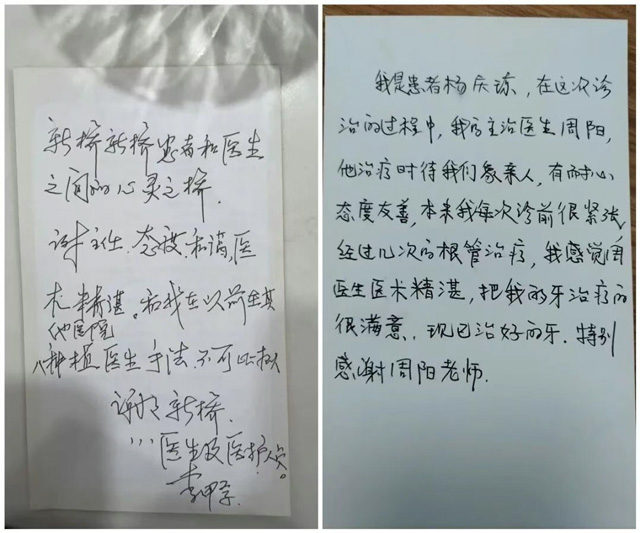 新桥新桥患者和医生
之间的心灵之桥.
谢主任.态度和蔼,医
术精湛。和我在以前在其
他医院
种植医生手法.不可比拟
谢谢新桥.
医生及医护人员。
我是患者杨庆琼,在这次诊
治的过程中,我的主治医生周阳,
他治疗时待我们象亲人,有耐心
态度友善,本来我每次诊前很紧张,
经过几次的根管治疗,我感觉周
医生医术精湛,把我的牙治疗的
很满意.现已治好的牙.特别
感谢周阳老师.